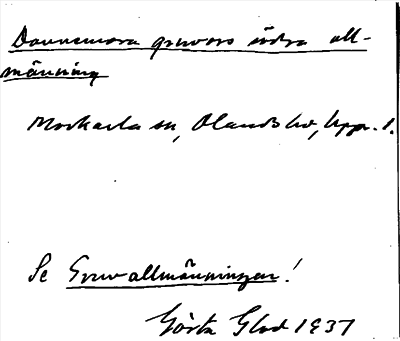 Dannemora gruvors södra all-
männing
Morkarla sn, Olands hd, Upps. l.
Se Gruvallmänningen!
Gösta Glad 1937